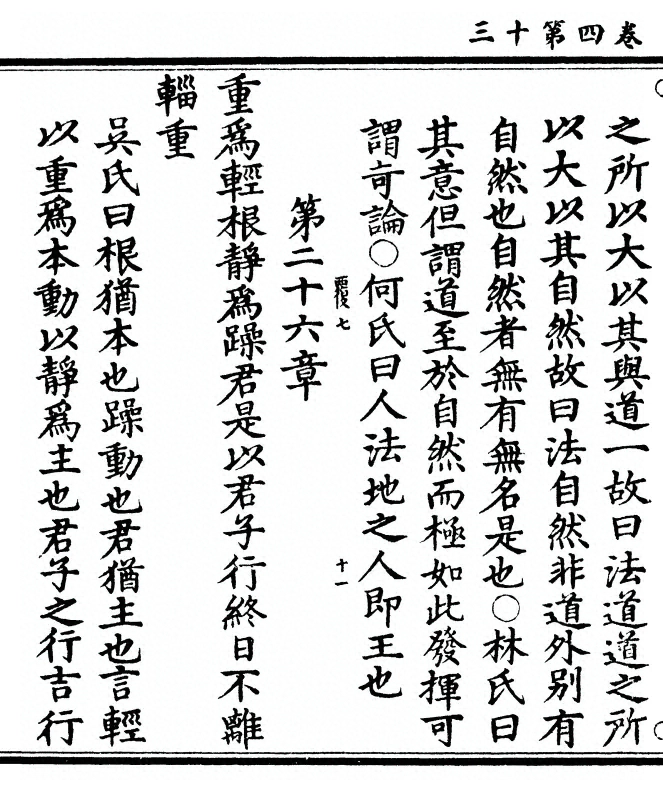 三十第四卷
之所以大以其與道一故曰法道道之所
以大以其自然故曰法自然非道外别有
自然也自然者無有無名是也○林氏曰
其意但謂道至於自然而極如此發揮可
謂奇論○何氏曰人法地之人即王也
十一
第二十六章
重爲輕根靜爲躁君是以君子行終日不離
輜重
吳氏曰根猶本也躁動也君猶主也言輕
以重爲本動以靜爲主也君子之行吉行